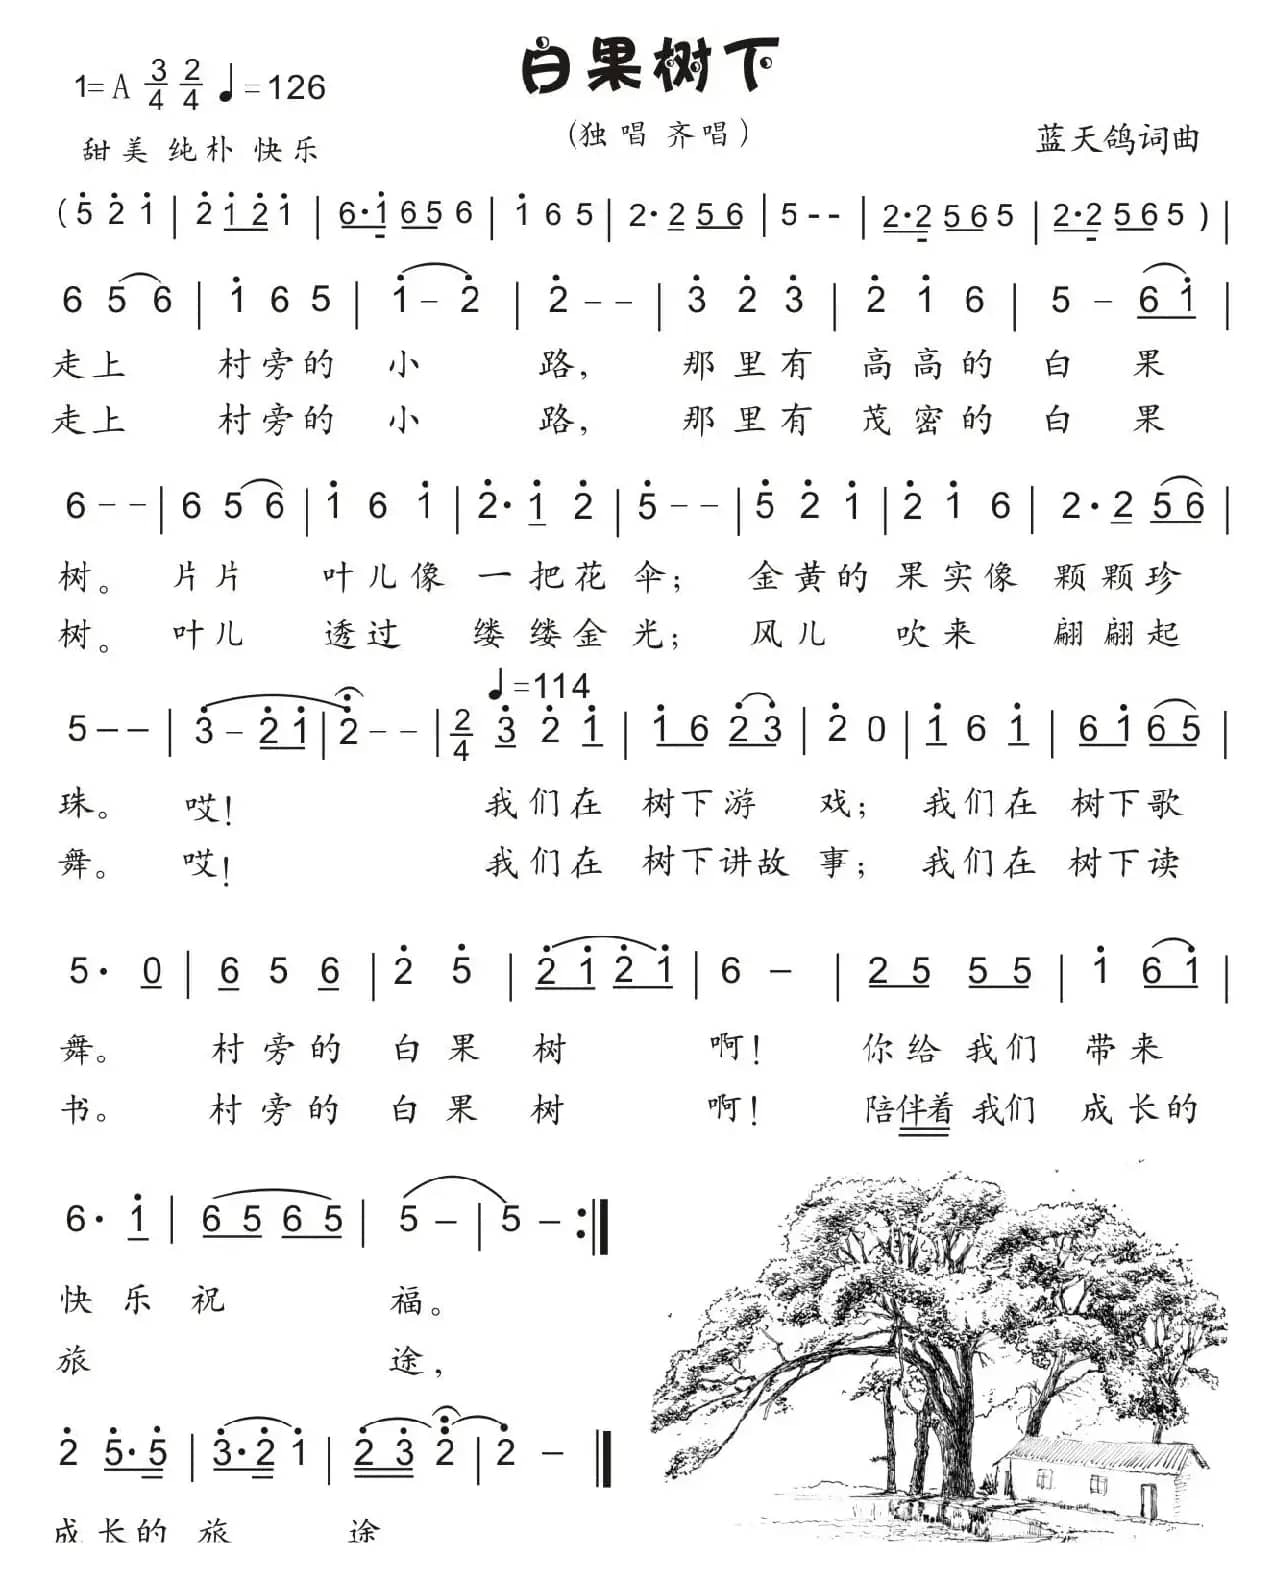 白果树下
1=A 3/4 2/4 ♩=126
(独唱 齐唱)
甜美 纯朴 快乐
蓝天鸽词曲
(5̇ 2̇ 1̇ | 2̇ 1̇ 2̇ 1̇ | 6·1̇ 6 5 6 | 1̇ 6 5 | 2·2 5 6 | 5 - - | 2·2 5 6 5 | 2·2 5 6 5 ) |
6 5 6 | 1̇ 6 5 | 1̇ - 2̇ | 2̇ - - | 3̇ 2̇ 3̇ | 2̇ 1̇ 6 | 5 - 6 1̇ |
走上 村旁的 小 路, 那里有 高高的 白 果
走上 村旁的 小 路, 那里有 茂密的 白 果
6 - - | 6 5 6 | 1̇ 6 1̇ | 2̇· 1̇ 2̇ | 5̇ - - | 5̇ 2̇ 1̇ | 2̇ 1̇ 6 | 2· 2 5 6 |
树。 片片 叶儿像 一把花 伞; 金黄的 果实像 颗颗珍
树。 叶儿 透过 缕缕金 光; 风儿 吹来 翩翩起
♩=114
5 - - | 3̇ - 2̇ 1̇ | 2̇ - - | 2/4 3̇ 2̇ 1̇ | 1̇ 6 2̇ 3̇ | 2̇ 0 | 1̇ 6 1̇ | 6 1̇ 6 5 |
珠。 哎! 我们在 树下游 戏; 我们在 树下歌
舞。 哎! 我们在 树下讲故 事; 我们在 树下读
5· 0 | 6 5 6 | 2̇ 5̇ | 2̇ 1̇ 2̇ 1̇ | 6 - | 2 5 5 5 | 1̇ 6 1̇ |
舞。 村旁的 白果 树 啊! 你给我们 带来
书。 村旁的 白果 树 啊! 陪伴着我们 成长的
6· 1̇ | 6 5 6 5 | 5 - | 5 - :‖
快乐祝 福。
旅 途,
2̇ 5̇·5̇ | 3̇·2̇ 1̇ | 2̇ 3̇ 2̇ | 2̇ - ‖
成长的 旅 途